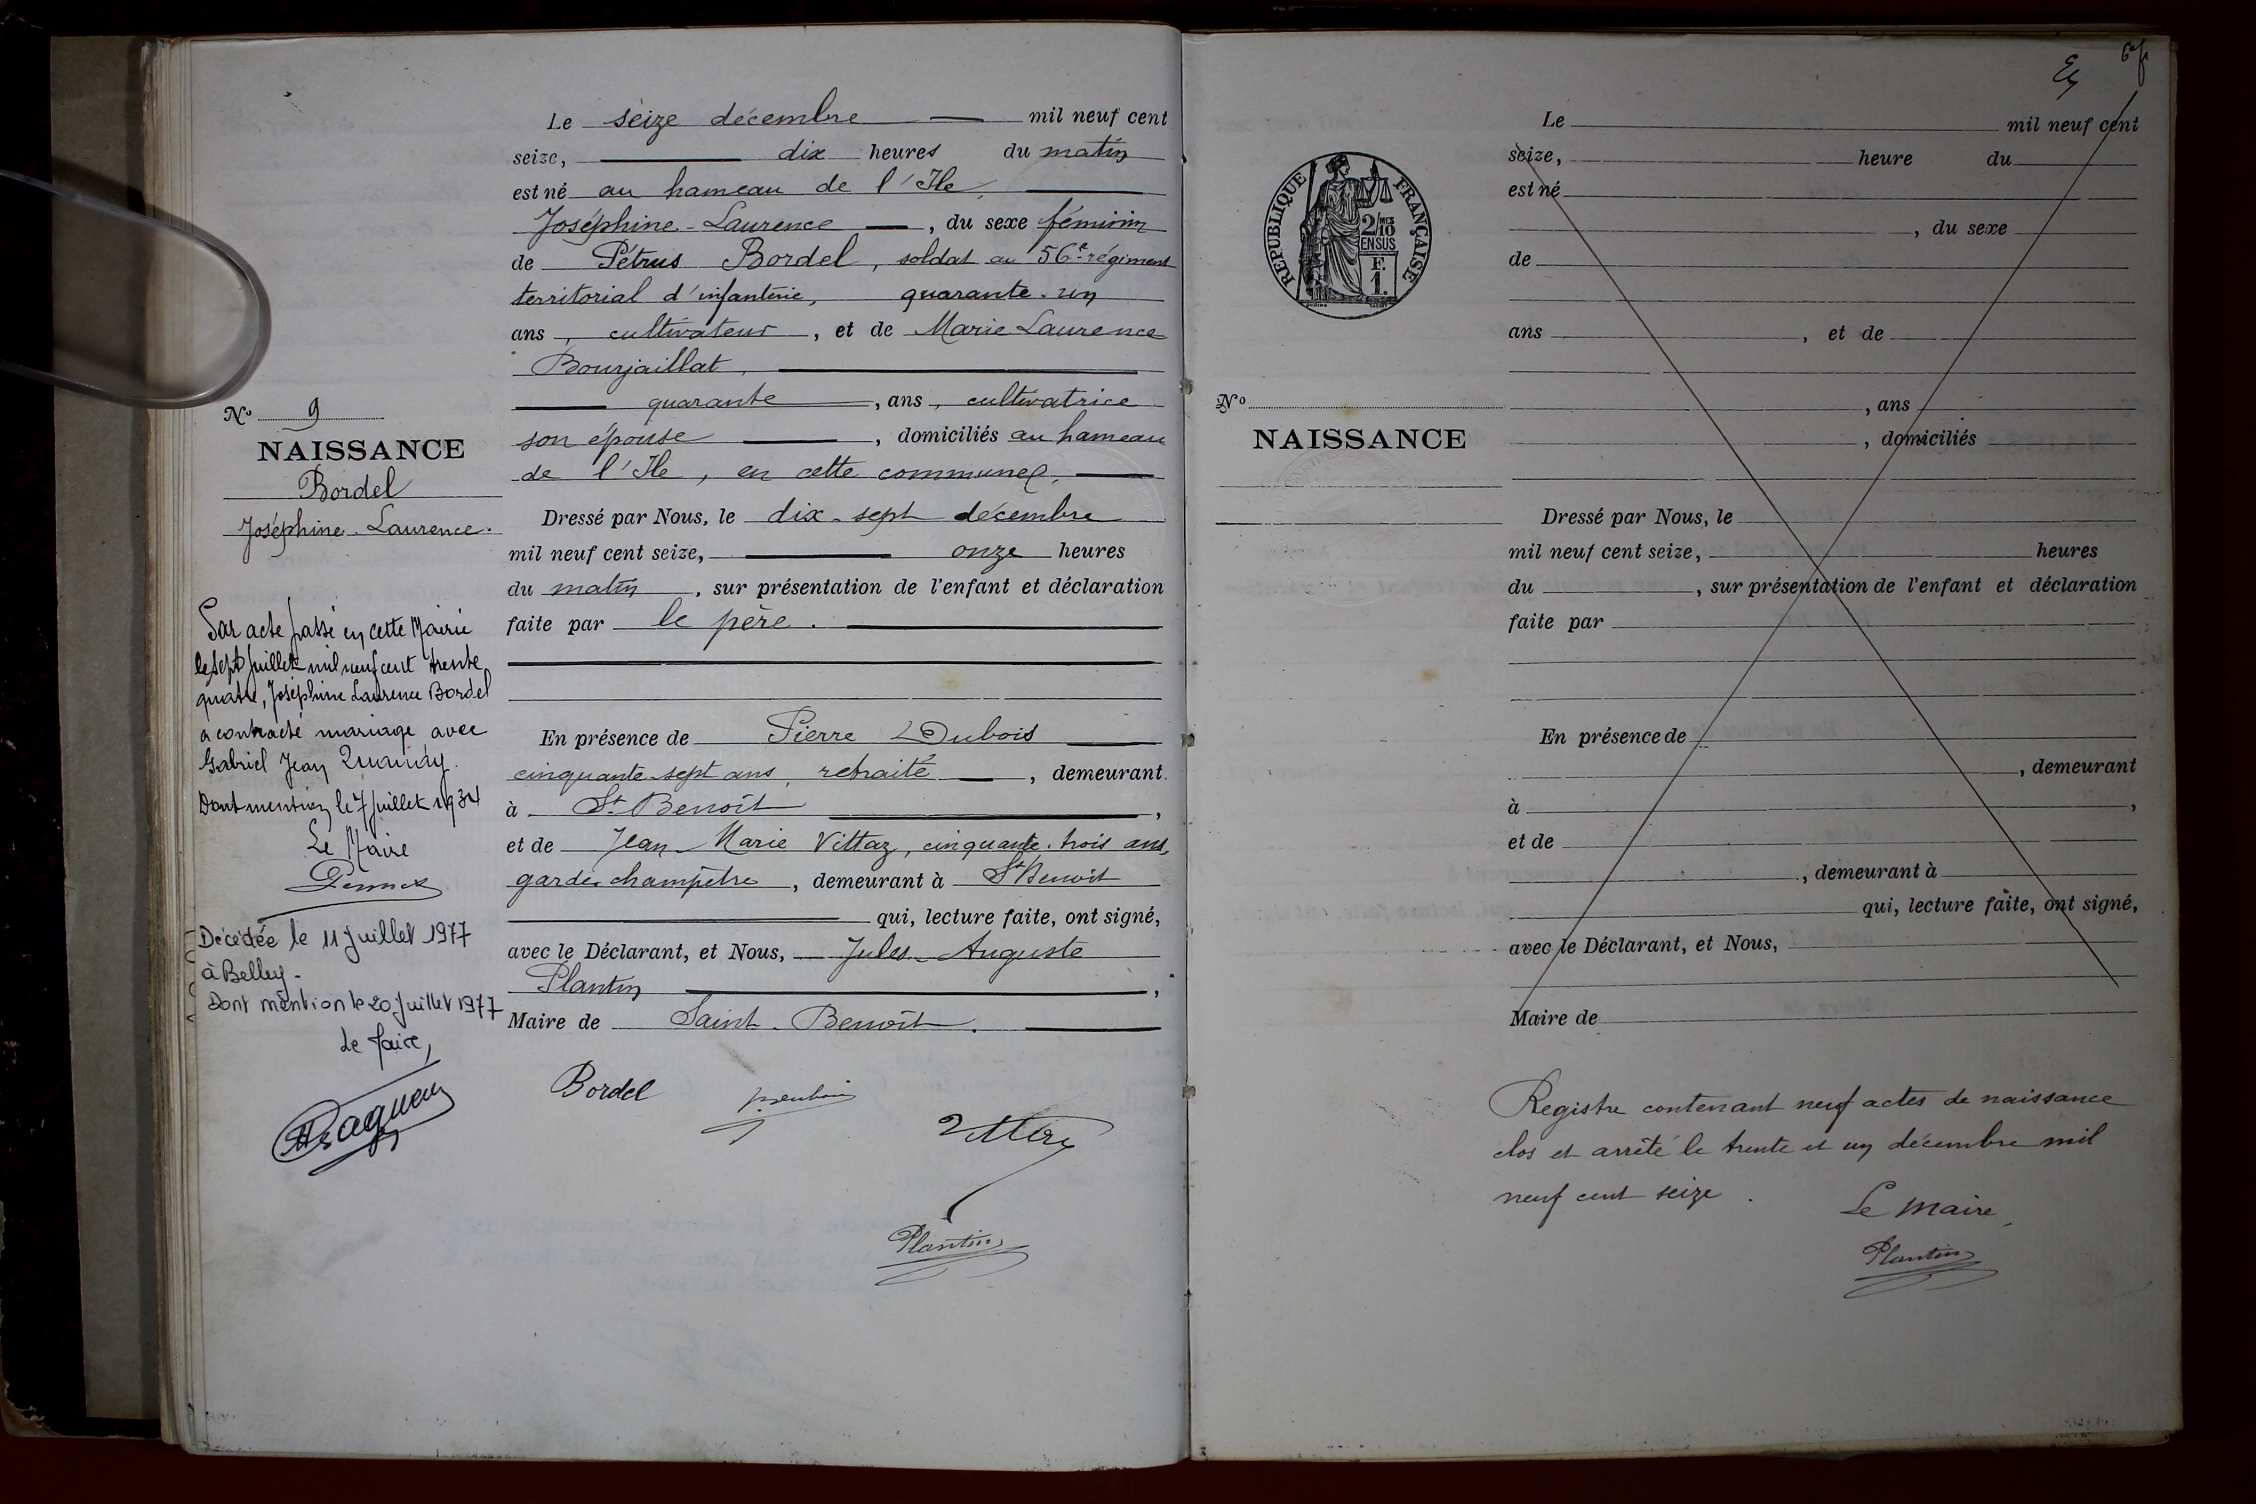 Le seize décembre mil neuf cent
seize, dix heures du matin
est né au hameau de l'Ile,
Joséphine-Laurence, du sexe féminin
de Pétrus Bordel, soldat au 56e régiment
territorial d'infanterie, quarante-un
ans, cultivateur, et de Marie Laurence
Bourjaillat,
quarante, ans, cultivatrice
son épouse, domiciliés au hameau
de l'Ile, en cette commune,
Dressé par Nous, le dix-sept décembre
mil neuf cent seize, onze heures
du matin, sur présentation de l'enfant et déclaration
faite par le père.
En présence de Pierre Dubois
cinquante-sept ans, retraité, demeurant
à St Benoît,
et de Jean-Marie Vittaz, cinquante-trois ans,
garde-champêtre, demeurant à St Benoit
qui, lecture faite, ont signé,
avec le Déclarant, et Nous, Jules-Auguste
Plantin,
Maire de Saint-Benoît.
Bordel
Plantin
No 9
NAISSANCE
Bordel
Joséphine-Laurence.
Par acte passé en cette Mairie
le sept juillet mil neuf cent trente
quatre, Joséphine Laurence Bordel
a contracté mariage avec
Gabriel Jean
Dont mention le 7 juillet 1934
Le Maire
Décédée le 11 Juillet 1977
à Belley-
Dont mention le 20 Juillet 1977
Le Maire,
6e f
RÉPUBLIQUE FRANÇAISE
2/10 MES
EN SUS
F.
1.
No
NAISSANCE
Le mil neuf cent
seize, heure du
est né
, du sexe
de
ans , et de
, ans
, domiciliés
Dressé par Nous, le
mil neuf cent seize, heures
du , sur présentation de l'enfant et déclaration
faite par
En présence de
, demeurant
à ,
et de
, demeurant à
qui, lecture faite, ont signé,
avec le Déclarant, et Nous,
Maire de
Registre contenant neuf actes de naissance
clos et arrêté le trente et un décembre mil
neuf cent seize.
Le Maire,
Plantin